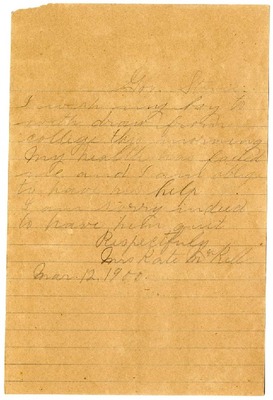 I wish my boy to
with draw from
college this morning
My health has failed
me and I am oblige
to have his help
I am sorry indeed
to have him quit
Respectfully
Mrs Kate
Mar. 12. 1900.